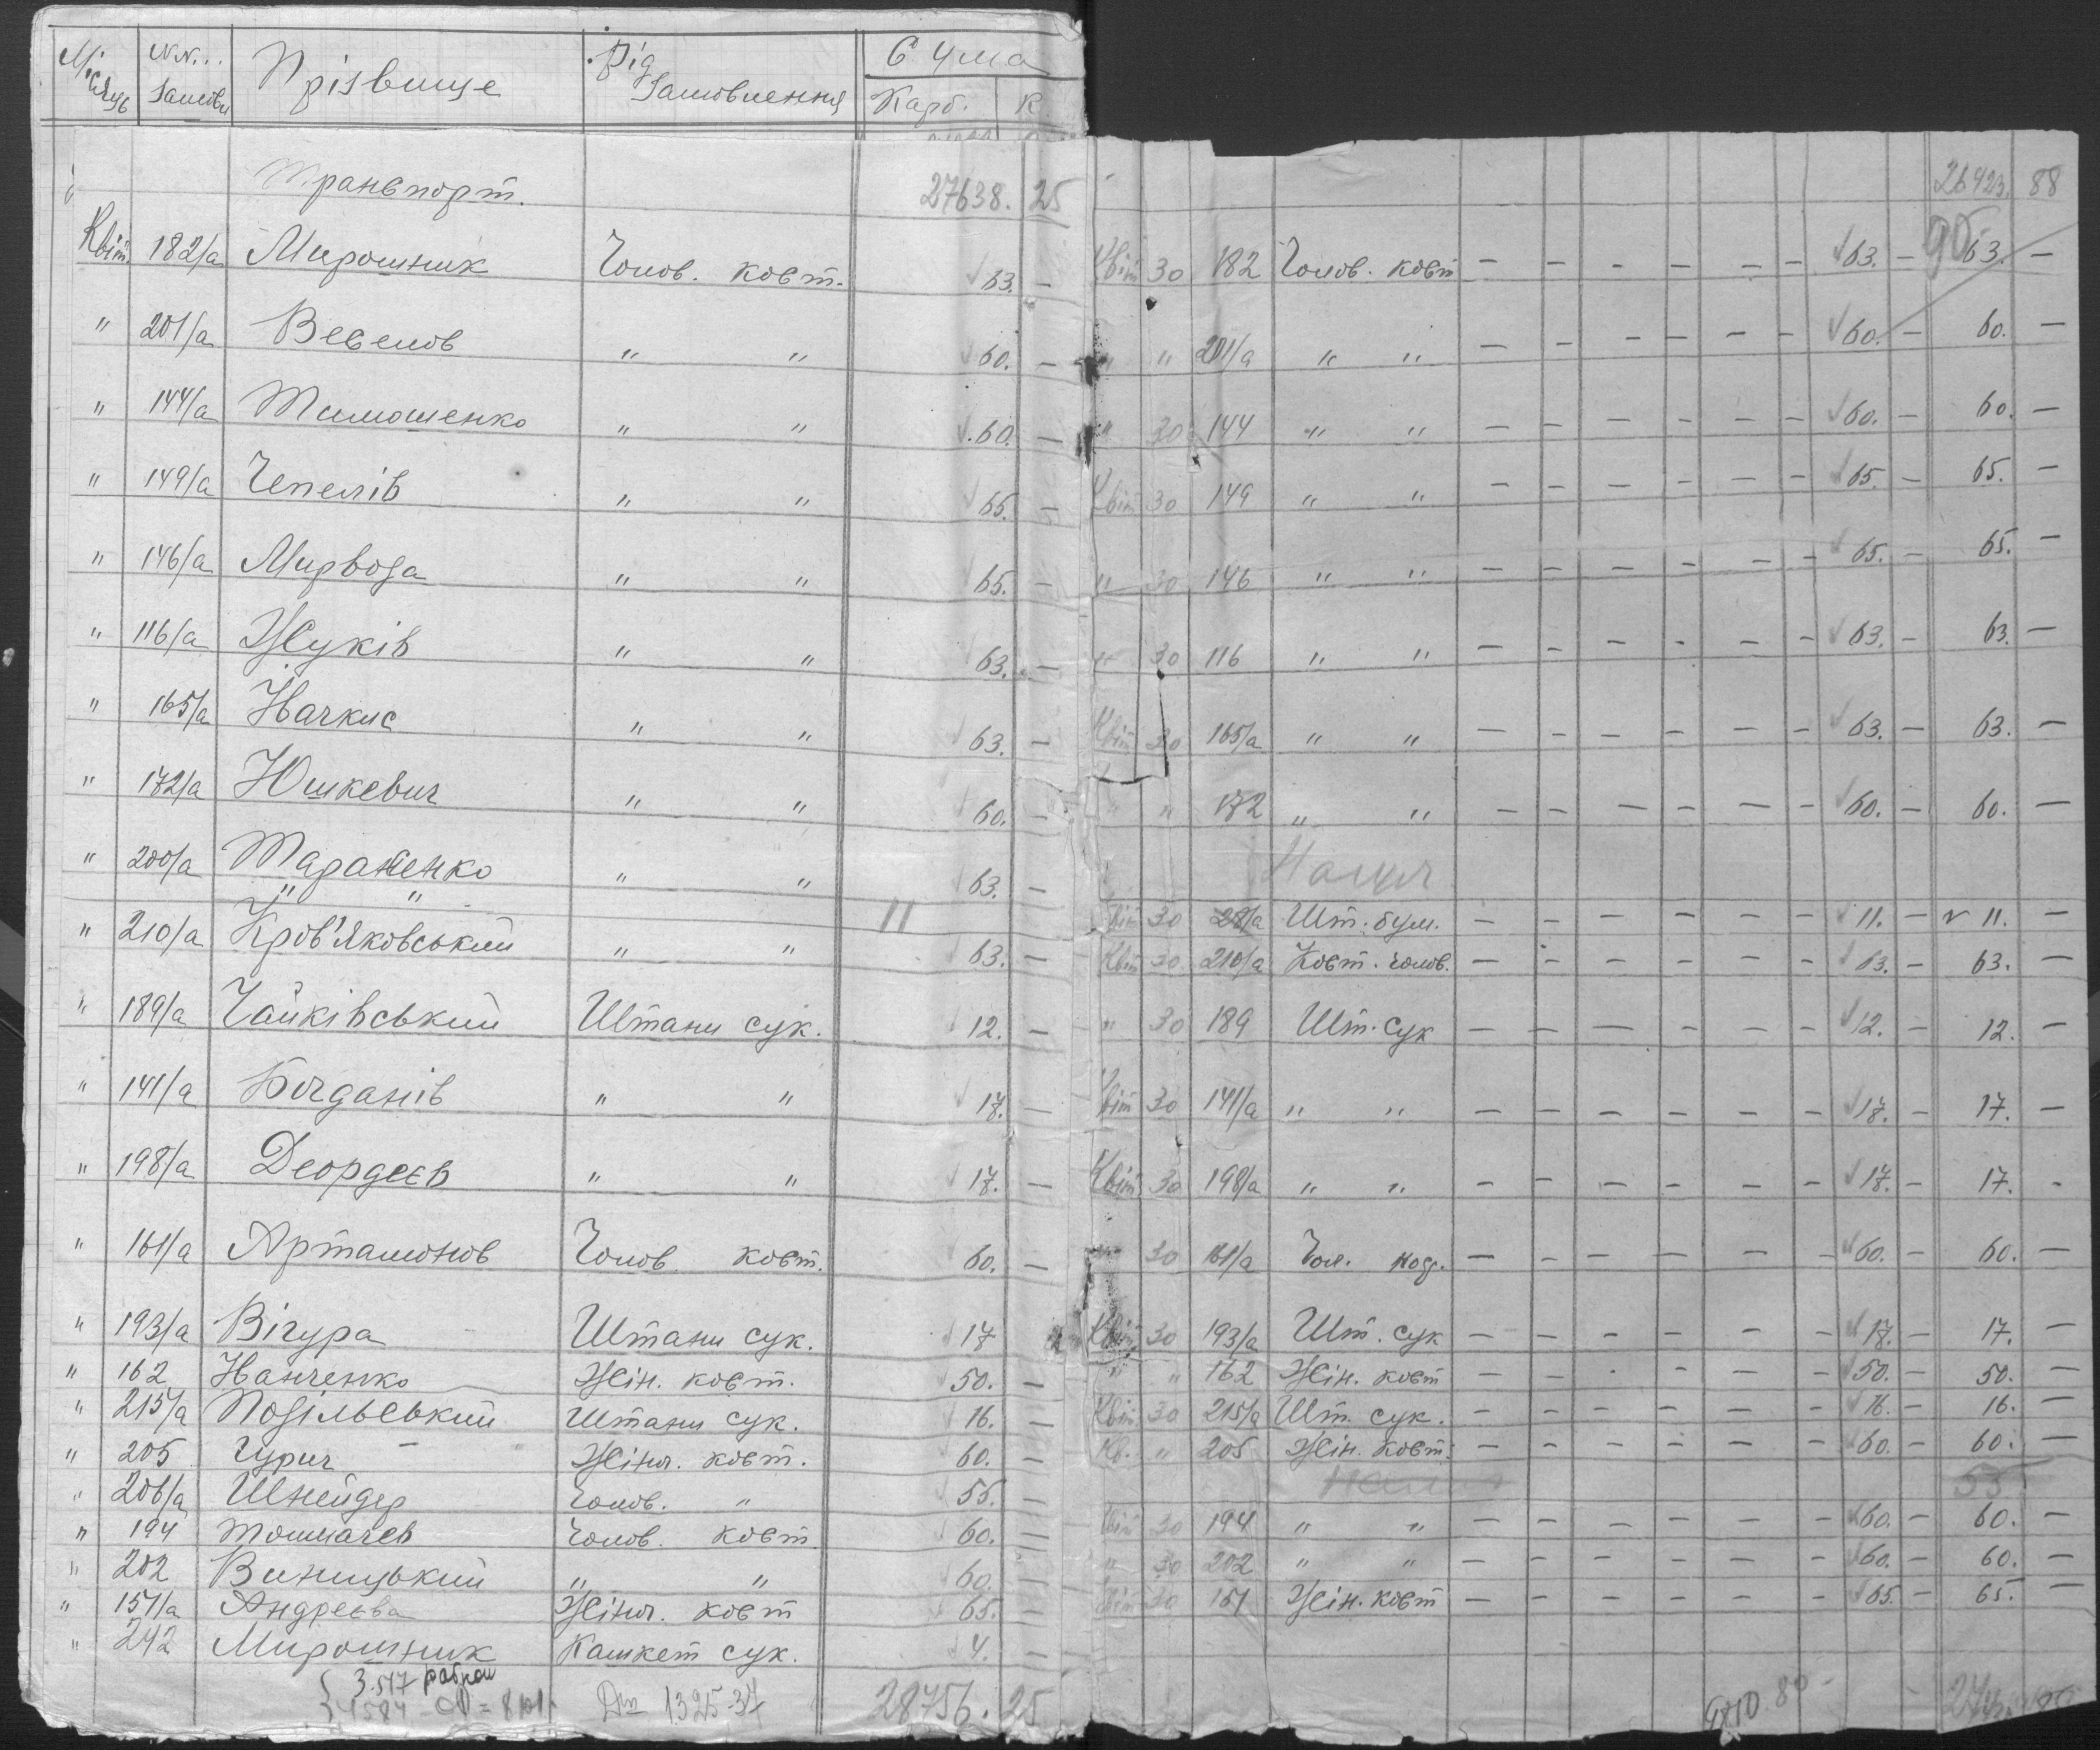 Місяць NN... Замовл Прізвище Рід Замовлення Сума Карб. К.
Транспорт. 27638. 25 26423. 88
Квіт. 182/а Мирошник Чолов. кост. √ 63. — Квіт 30 182 Чолов. кост — — — — — — √ 63. — 90 63. —
" 201/а Веселов " " √ 60. — " " 201/а " " — — — — — — √ 60. — 60. —
" 144/а Тимошенко " " √ 60. — " 30 144 " " — — — — — — √ 60. — 60. —
" 149/а Чепелів " " √ 65. — Квіт 30 149 " " — — — — — — √ 65. — 65. —
" 146/а Мирвода " " √ 65. — " 30 146 " " — — — — — — √ 65. — 65. —
" 116/а Жуків " " √ 63. — " 30 116 " " — — — — — — √ 63. — 63. —
" 165/а Начкис " " √ 63. — Квіт 30 165/а " " — — — — — — √ 63. — 63. —
" 172/а Юшкевич " " √ 60. — " " 172 " " — — — — — — √ 60. — 60. —
" 200/а Тараненко " " √ 63. —
" " 11 Квіт 30 Шт. бум. — — — — — — √ 11. — 11. —
" 210/а Кров'яковський " " √ 63. — Квіт 30 210/а Кост. чолов. — — — — — — √ 63. — 63. —
" 189/а Чайківський Штани сук. √ 12. — " 30 189 Шт. сук — — — — — — √ 12. — 12. —
" 141/а Богданів " " √ 17. — Квіт 30 141/а " " — — — — — — √ 17. — 17. —
" 198/а Деордєєв " " √ 17. — Квіт 30 198/а " " — — — — — — √ 17. — 17. -
" 161/а Артамонов Чолов кост. √ 60. — " 30 161/а Чол. — — — — — — √ 60. — 60. —
" 193/а Вігура Штани сук. √ 17 Квіт 30 193/а Шт. сук — — — — — — √ 17. — 17. —
" 162 Нанченко Жін. кост. √ 50. — " " 162 Жін. кост — — — — — — √ 50. — 50. —
" 215/а Подільський Штани сук. √ 16. — Квіт 30 215/а Шт. сук. — — — — — — √ 16. — 16. —
" 205 Гурич Жіноч. кост. √ 60. — Кв. " 205 Жін. кост. — — — — — — √ 60. — 60. —
" 206/а Шнейдер Чолов. " √ 55. — 55
" 194 Толмачев Чолов. кост. √ 60. — Квіт 30 194 " " — — — — — — √ 60. — 60. —
" 202 Виницький " " √ 60. — " 30 202 " " — — — — — — √ 60. — 60. —
" 151/а Андреєва Жіноч. кост √ 65. — Квіт 30 151 Жін. кост — — — — — — √ 65. — 65. —
" 242 Мирошник Кашкет сук. √ 4. —
3.517
4584 1325-37 28756. 25